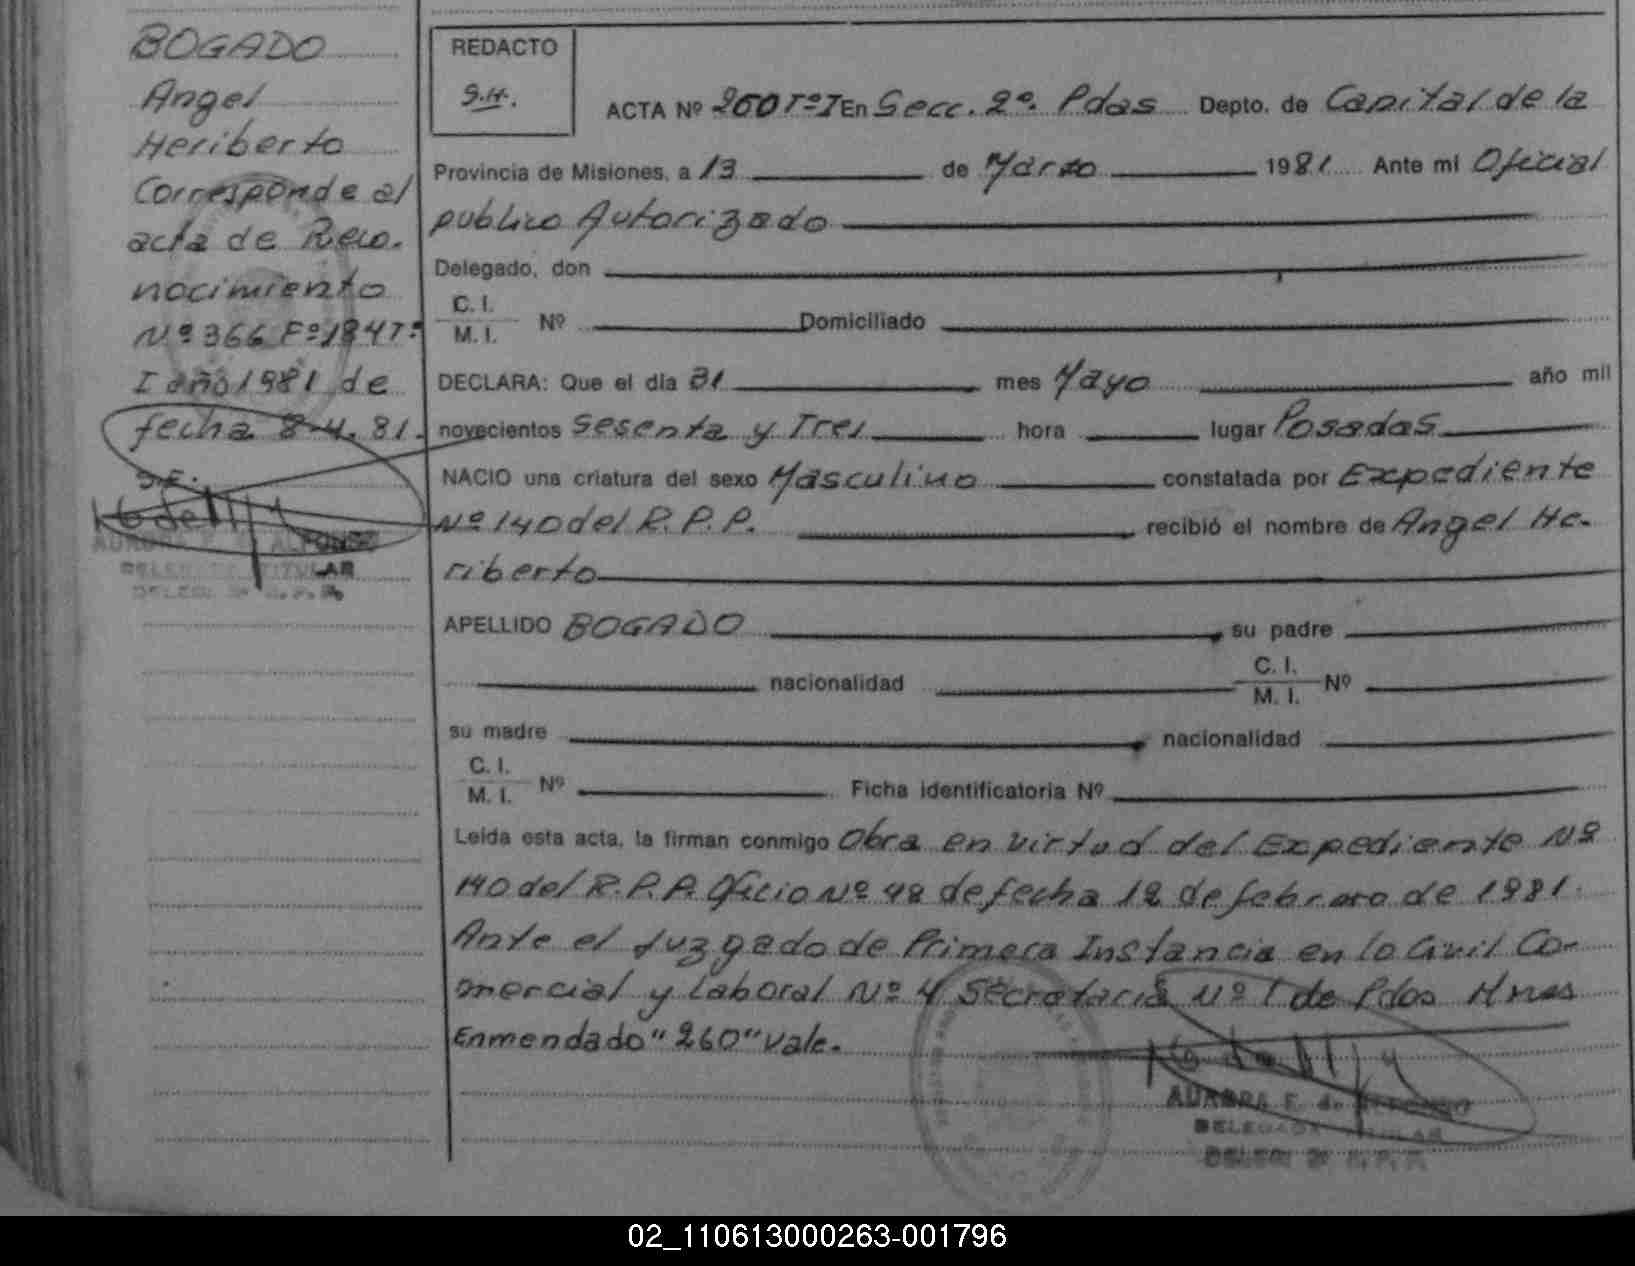 BOGADO
Angel
Heriberto
Corresponde al
acta de Reco-
nocimiento
Nº 366 Fº 184 Tº
I año 1981 de
fecha 8-4-81.
DELEGADA TITULAR
REDACTO
S.H.
ACTA Nº 260 Tº I En Secc. 2º. Pdas Depto. de Capital de la
Provincia de Misiones, a 13 de Marzo 1981 Ante mi Oficial
publico Autorizado
Delegado, don
C. I.
M. I. Nº Domiciliado
DECLARA: Que el dia 31 mes Mayo año mil
novecientos Sesenta y Tres hora lugar Posadas
NACIO una criatura del sexo Masculino constatada por Expediente
Nº 140 del R. P. P. recibió el nombre de Angel He-
riberto
APELLIDO BOGADO su padre
nacionalidad C. I.
M. I. Nº
su madre nacionalidad
C. I.
M. I. Nº Ficha identificatoria Nº
Leida esta acta, la firman conmigo Obra en virtud del Expediente Nº
140 del R. P. P. Oficio Nº 48 de fecha 12 de febrero de 1981.
Ante el Juzgado de Primera Instancia en lo Civil Co-
mercial y Laboral Nº 4 Secretaria Nº 1 de Pdas Mnes
Enmendado "260" Vale.
AURORA F. de
DELEGADA TITULAR
02_110613000263-001796